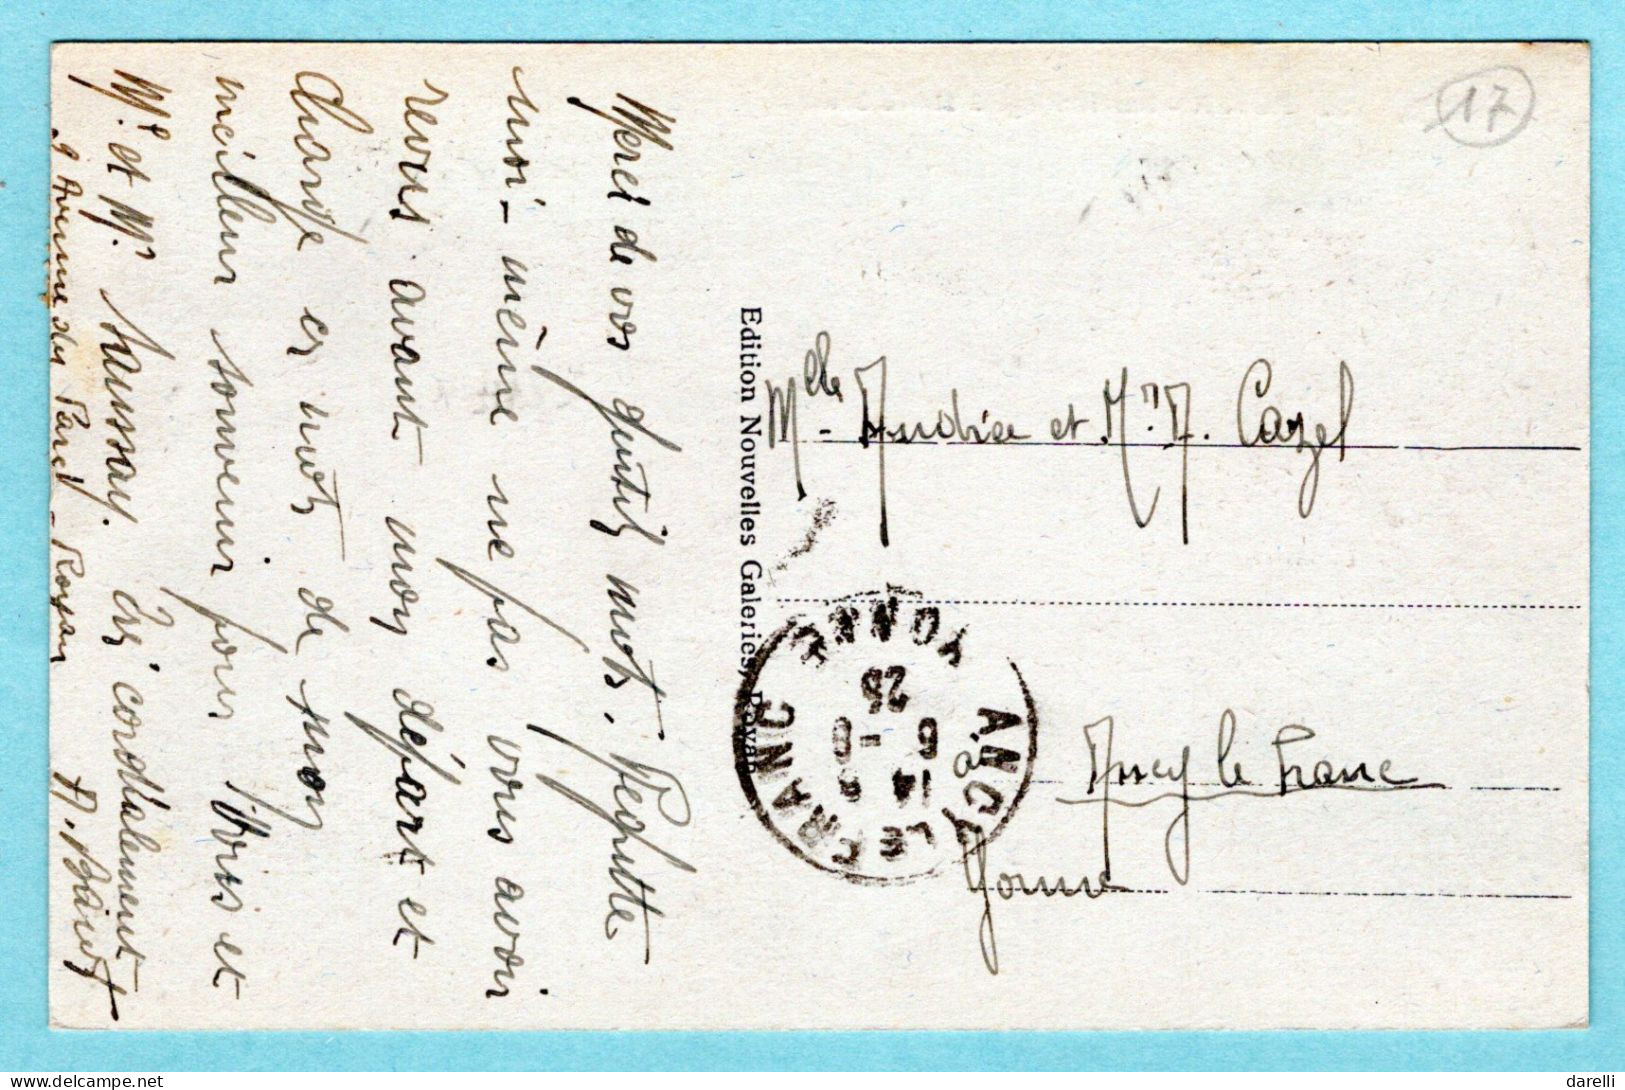 Merci de vos gentils mots. Regrette
moi-même ne pas vous avoir
revus avant mon départ et
charge ces mots de mon
meilleur souvenir pour Vous et
Mr et Mr
Très cordialement
9 Avenue du Parc - Royan
Edition Nouvelles Galeries, Royan
Melle Andrée et M. A. Cazel
à Ancy le Franc
Yonne
ANCY LE FRANC
YONNE
14
6 - 8
25
17
delcampe.net
darelli